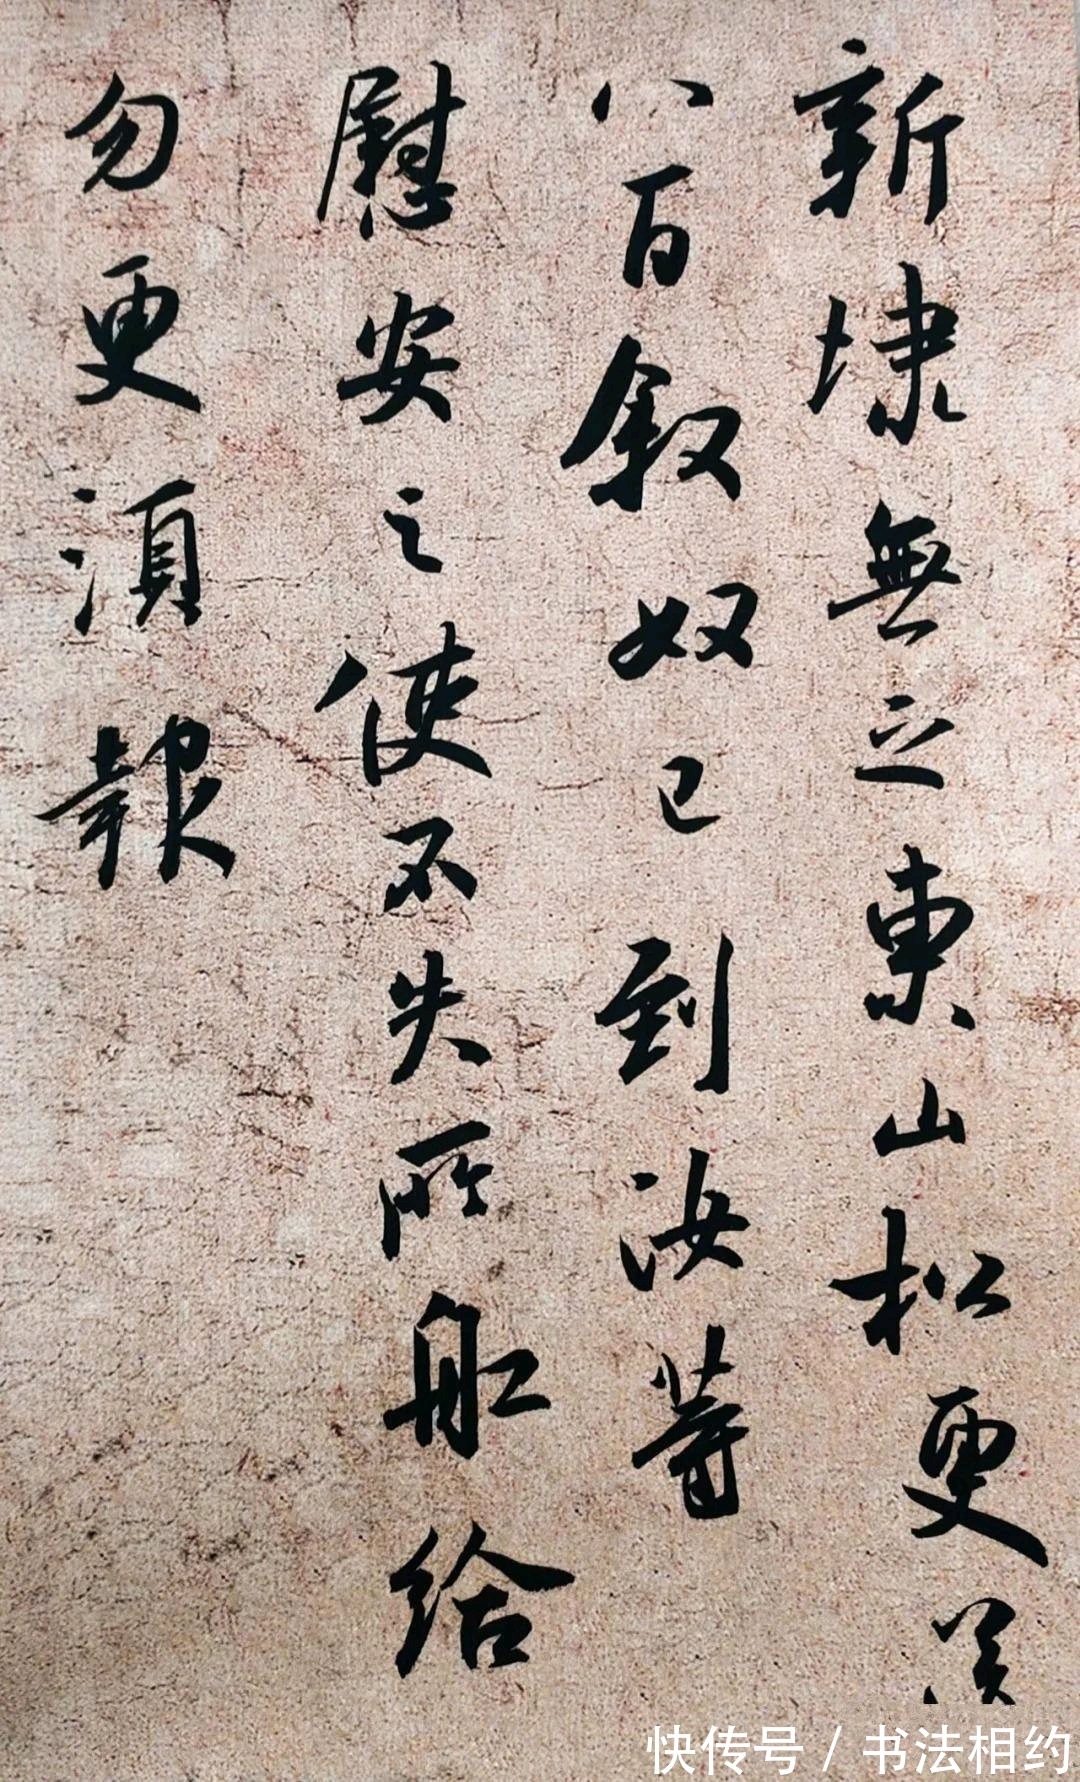 新埭無乏東山松更送
八百叙奴已到汝等
慰安之使不失所舡給
勿更湏報
快传号 / 书法相约